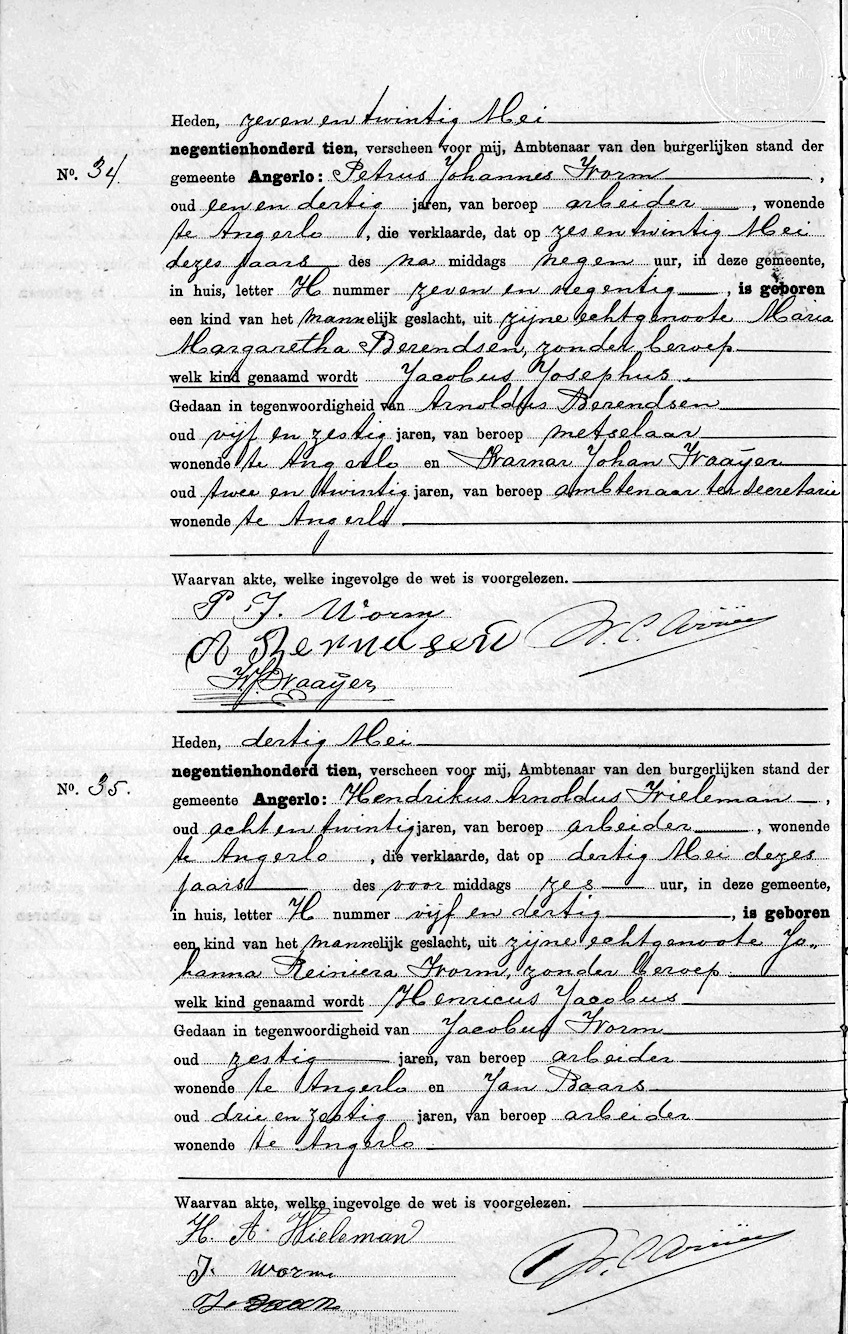 Heden, zeven en twintig Mei
negentienhonderd tien, verscheen voor mij, Ambtenaar van den burgerlijken stand der
No. 34.
gemeente Angerlo: Petrus Johannes Worm,
oud een en dertig jaren, van beroep arbeider, wonende
te Angerlo, die verklaarde, dat op zes en twintig Mei
dezes jaars des na middags negen uur, in deze gemeente,
in huis, letter H nummer zeven en negentig, is geboren
een kind van het mannelijk geslacht, uit zijne echtgenoote Maria
Margaretha Berendsen, zonder beroep
welk kind genaamd wordt Jacobus Josephus.
Gedaan in tegenwoordigheid van Arnoldus Berendsen
oud vijf en zestig jaren, van beroep metselaar
wonende te Angerlo en Johan Waaijer
oud twee en twintig jaren, van beroep ambtenaar ter secretarie
wonende te Angerlo
Waarvan akte, welke ingevolge de wet is voorgelezen.
P J. Worm
A Berndsen
Waaijer
Heden, dertig Mei
negentienhonderd tien, verscheen voor mij, Ambtenaar van den burgerlijken stand der
No. 35.
gemeente Angerlo: Hendrikus Arnoldus Wieleman,
oud acht en twintig jaren, van beroep arbeider, wonende
te Angerlo, die verklaarde, dat op dertig Mei dezes
jaars des voor middags zes uur, in deze gemeente,
in huis, letter H nummer vijf en dertig, is geboren
een kind van het mannelijk geslacht, uit zijne echtgenoote Jo-
hanna Reiniera Worm, zonder beroep
welk kind genaamd wordt Henricus Jacobus
Gedaan in tegenwoordigheid van Jacobus Worm
oud zestig jaren, van beroep arbeider
wonende te Angerlo en Jan Baars
oud drie en zestig jaren, van beroep arbeider
wonende te Angerlo
Waarvan akte, welke ingevolge de wet is voorgelezen.
H. A. Wieleman
J. Worm